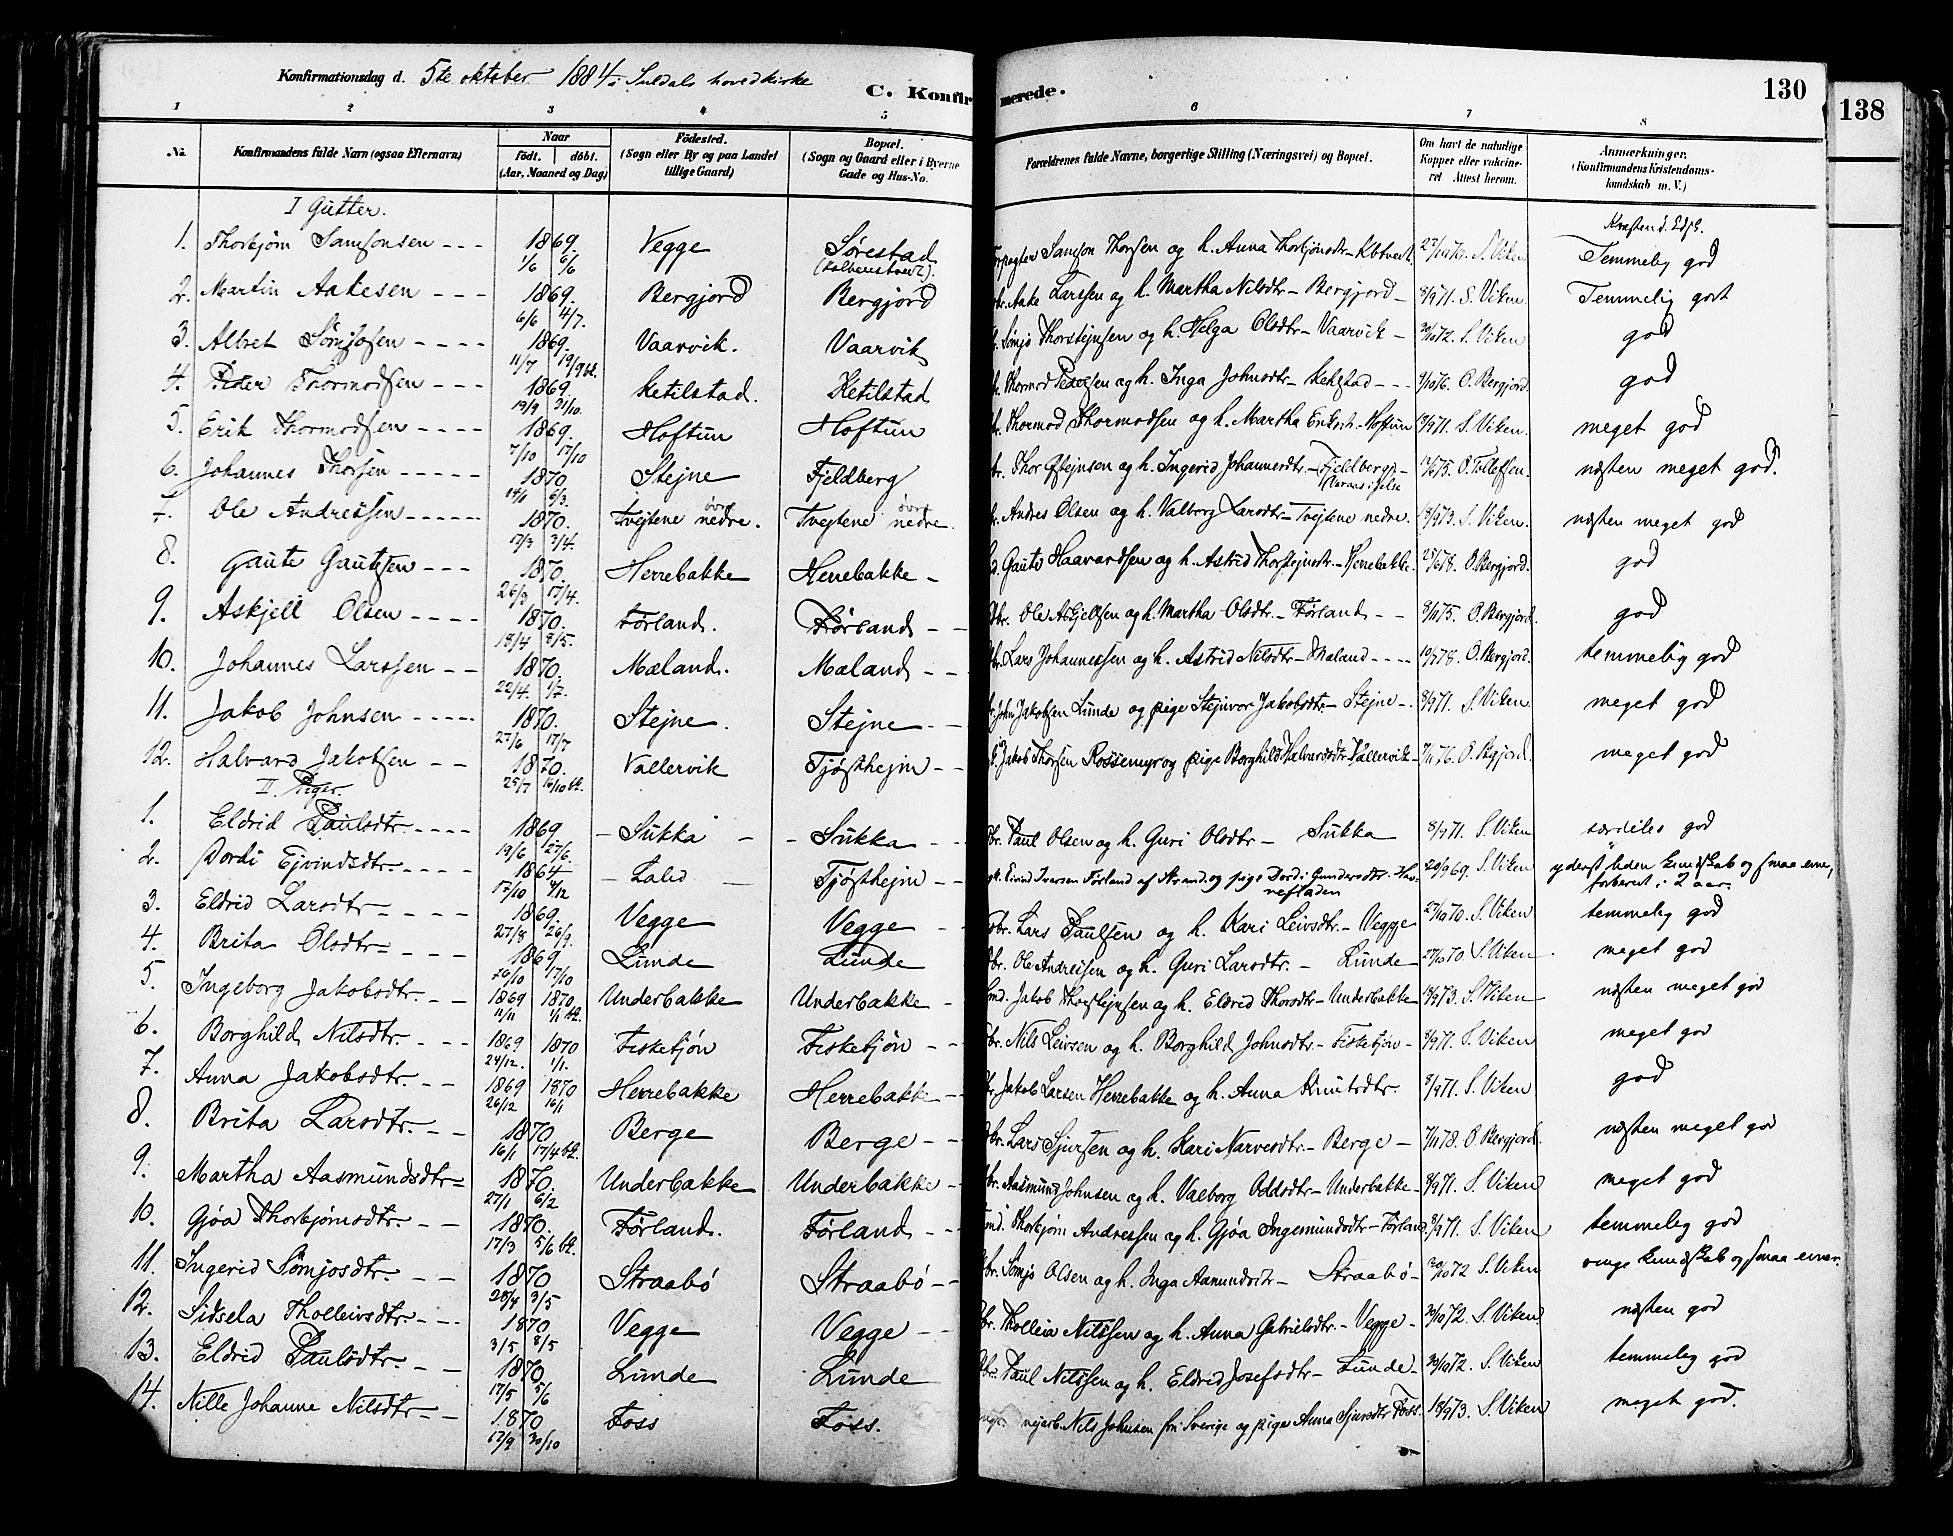 Konfirmationsdag d. 5te oktober 1884 i Suldals hovedkirke
C. Konfirmerede.
130
138
1 2 3 4 5 6 7 8
No. Konfirmandens fulde Navn (ogsaa Efternavn) Naar födt. döbt. (Aar, Maaned og Dag) Födested. (Sogn eller By og paa Landet tillige Gaard) Bopæl. (Sogn og Gaard eller i Byerne Gade og Hus-No. Forældrenes fulde Navne, borgerlige Stilling (Næringsvei) og Bopæl. Om havt de naturlige Kopper eller vakcineret Attest herom. Anmærkninger. (Konfirmandens Kristendomskundskab m. V.)
I Gutter.
1. Thorbjørn Samsonsen 1869. 1/6 6/6 Vegge Sørestad Samson Thorsen og h. Anna Thorbjørnsdtr 27/10 70. S. Viken Temmelig god
2. Martin Aakesen 1869. 6/6 4/7. Bergjord Bergjord Aake Larssen og h. Martha Nilsdtr – Bergjord 8/9 71. S. Viken Temmelig godt
3. Albret Sømjosen 1869. 11/7 19/9 bl. Vaarvik. Vaarvik Sømjo Thorstejnsen og h. Helga Olsdtr – Vaarvik 30/10 72. S. Viken god
4. Peder Thormodsen 1869. 19/9 31/10. Ketilstad. Ketilstad Thormod Pedersen og h. Inga Johnsdtr – Ketilstad 9/10 76. O. Bergjord god
5. Erik Thormodsen 1869. 7/10 17/10 Hoftun Hoftun Thormod Thormodsen og h. Martha Eriksdt. – Hoftun 18/9 71. S. Viken. meget god
6. Johannes Thorsen 1870 14/1 6/3. Stejne Fjeldberg Thor Østejnsen og h. Ingerid Johannesdtr – Fjeldberg 17/6 75. O. Tolleffsen. næsten meget god.
7. Ole Andreissen 1870. 17/3 3/4. Tvejtene nedre. Tvejtene nedre. Andres Olsen og h. Valborg Larsdtr – Tvejtene nedre. 18/9 73. S. Viken. næsten meget god
8. Gaute Gautesen 1870. 26/3 17/4. Herrebakke Herrebakke Gaute Haavardsen og h. Astrid Thorstejnsdtr – Herrebakke. 25/6 78. O. Bergjord. god
9. Askjell Olsen 1870. 18/4 8/5. Førland. Førland Ole Askjellsen og h. Martha Olsdtr – Førland 8/11 75. O. Bergjord. god
10. Johannes Larssen 1870. 22/4. 1/7. Mæland. Mæland Lars Johannessen og h. Astrid Nilsdtr – Mæland 19/7 78. O. Bergjord. temmelig god
11. Jakob Johnsen 1870. 27/6 17/7 Stejne. Stejne John Jakobsen Lunde og pige Stejnvor Jakobsdtr – Stejne 8/9 71. S. Viken. meget god
12. Halvard Jakobsen 1870. 25/7 16/10 bl. Vallervik Tjøsthejm Jakob Thorsen Rossemyr og pige Borghild Halvardsdtr Vallervik 7/11 76. O. Bgjord. meget god
II. Piger.
1. Eldrid Paulsdtr. 1869 19/6 27/6. Sukka Sukka Paul Olsen og h. Guri Olsdtr – Sukka 8/9 71. S. Viken særdeles god
2. Dordi Ejvindsdtr. 1864 17/10 4/12 Lalid Tjøsthejm Eivind Iversen Førland af Strand og pige Dordi Gundersdtr. 20/9 69. S. Viken yderst liden kundskab og smaa evne, forberedt i 2 aar.
3. Eldrid Larsdtr 1869. 27/8 26/9. Vegge Vegge Lars Paulsen og h. Kari Leivsdtr. – Vegge 27/10 70. S. Viken temmelig god
4. Brita Olsdtr 1869 26/10 17/10 Lunde Lunde Ole Andreisen og h. Guri Larsdtr. – Lunde 27/10 70 S. Viken meget god
5. Ingeborg Jakobsdtr. 1869 11/11 1870. 1/1 bl. Underbakke Underbakke Jakob Thorstejnsen og h. Eldrid Thorsdtr – Underbakke 18/9 73. S. Viken næsten meget god
6. Borghild Nilsdtr. 1869 24/12. 1870 1/1. Fisketjøn Fisketjøn Nils Leivsen og h. Borghild Johnsdtr – Fisketjøn 8/9 71. S. Viken meget god
7. Anna Jakobsdtr. 1869 26/12 1870 16/1 Herrebakke Herrebakke Jakob Larsen Herrebakke og h. Anna Knutsdtr. 8/9 71. S. Viken god
8. Brita Larsdtr. 1870 16/1 17/4 bl. Berge Berge Lars Sjursen og h. Kari Narvesdtr. – Berge 7/11 78. O. Bergjord. næsten meget god
9. Martha Aasmundsdtr 1870. 27/1 6/2 Underbakke Underbakke Aasmund Johnsen og h. Valborg Oddsdtr – Underbakke 8/9 71. S. Viken meget god
10. Gjøa Thorbjørnsdtr. 1870. 17/3 5/6 bl. Førland. Førland Thorbjørn Andressen og h. Gjøa Ingemundsdtr – Førland 8/9 71. S. Viken temmelig god
11. Ingerid Sømjosdtr. 1870 28/4 3/5 Straabø Straabø Sømjo Olsen og h. Inga Aamundsdtr – Straabø 30/10 72 S. Viken ringe kundskab og smaa evner.
12. Sidsela Tholleivsdtr. 1870 3/5 8/5 Vegge Vegge Tholleiv Nilssen og h. Anna Gabrielsdtr. – Vegge 30/10 72. S. Viken næsten god
13. Eldrid Paulsdtr. 1870 17/5 5/6 Lunde Lunde Paul Nilssen og h. Eldrid Josefsdtr – Lunde 30/10 72. S. Viken temmelig god
14. Nille Johanne Nilsdtr 1870 17/9 30/10 Foss Foss. vejarb. Nils Johnsen fra Sverige og pige Anna Sjursdtr Foss. 18/9 73. S. Viken meget god.